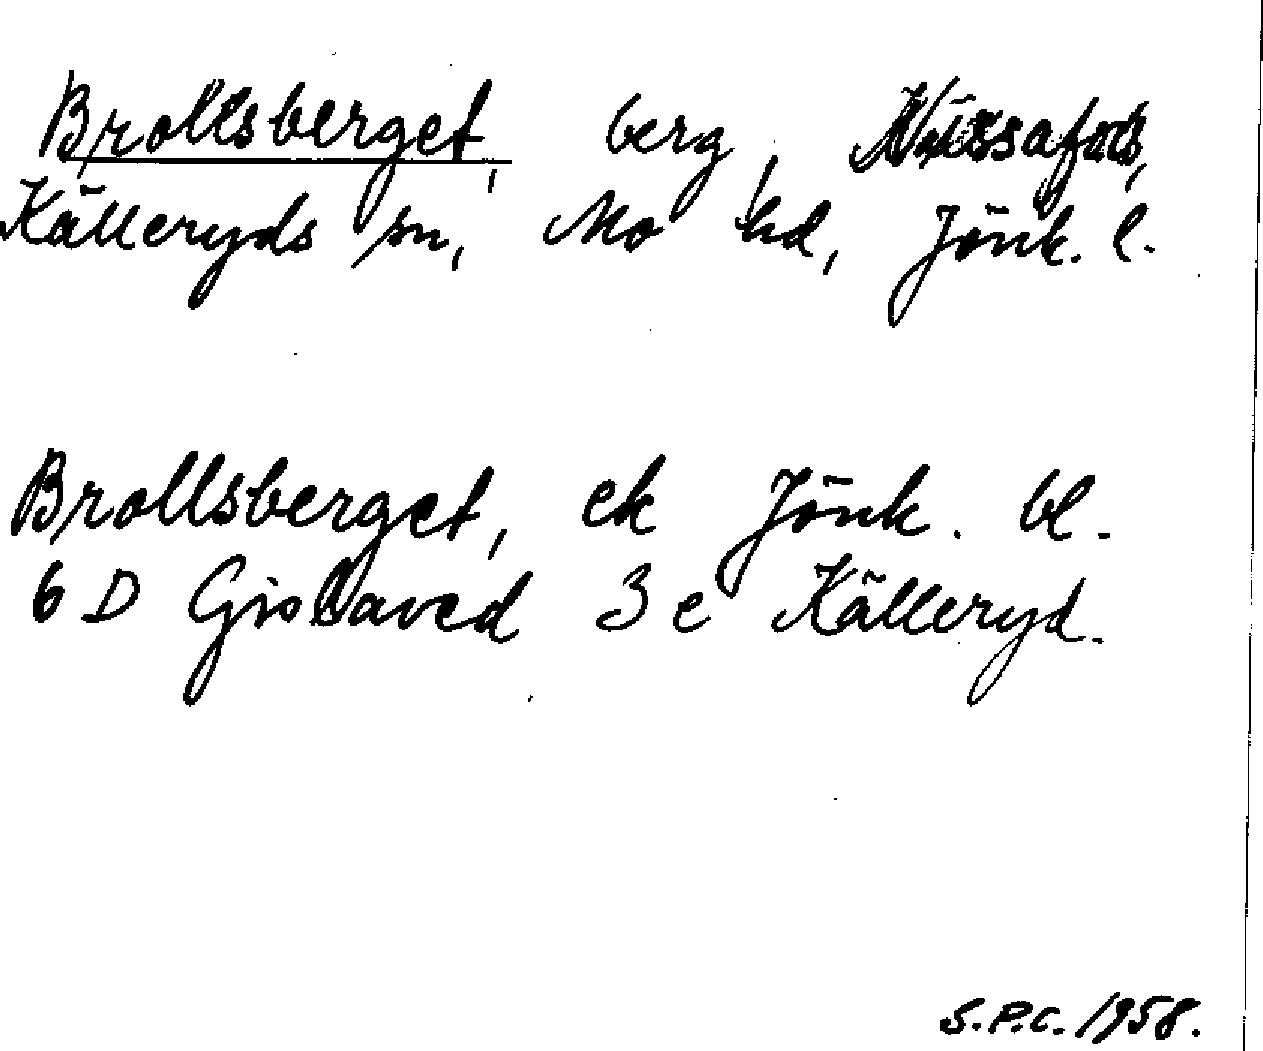 Brollsberget, berg, Nissafors,
Källeryds sn, Mo hd, Jönk. l.
Brollsberget, ek Jönk. bl.
6 D Gislaved 3 e Källeryd.
S.P.C. 1958.